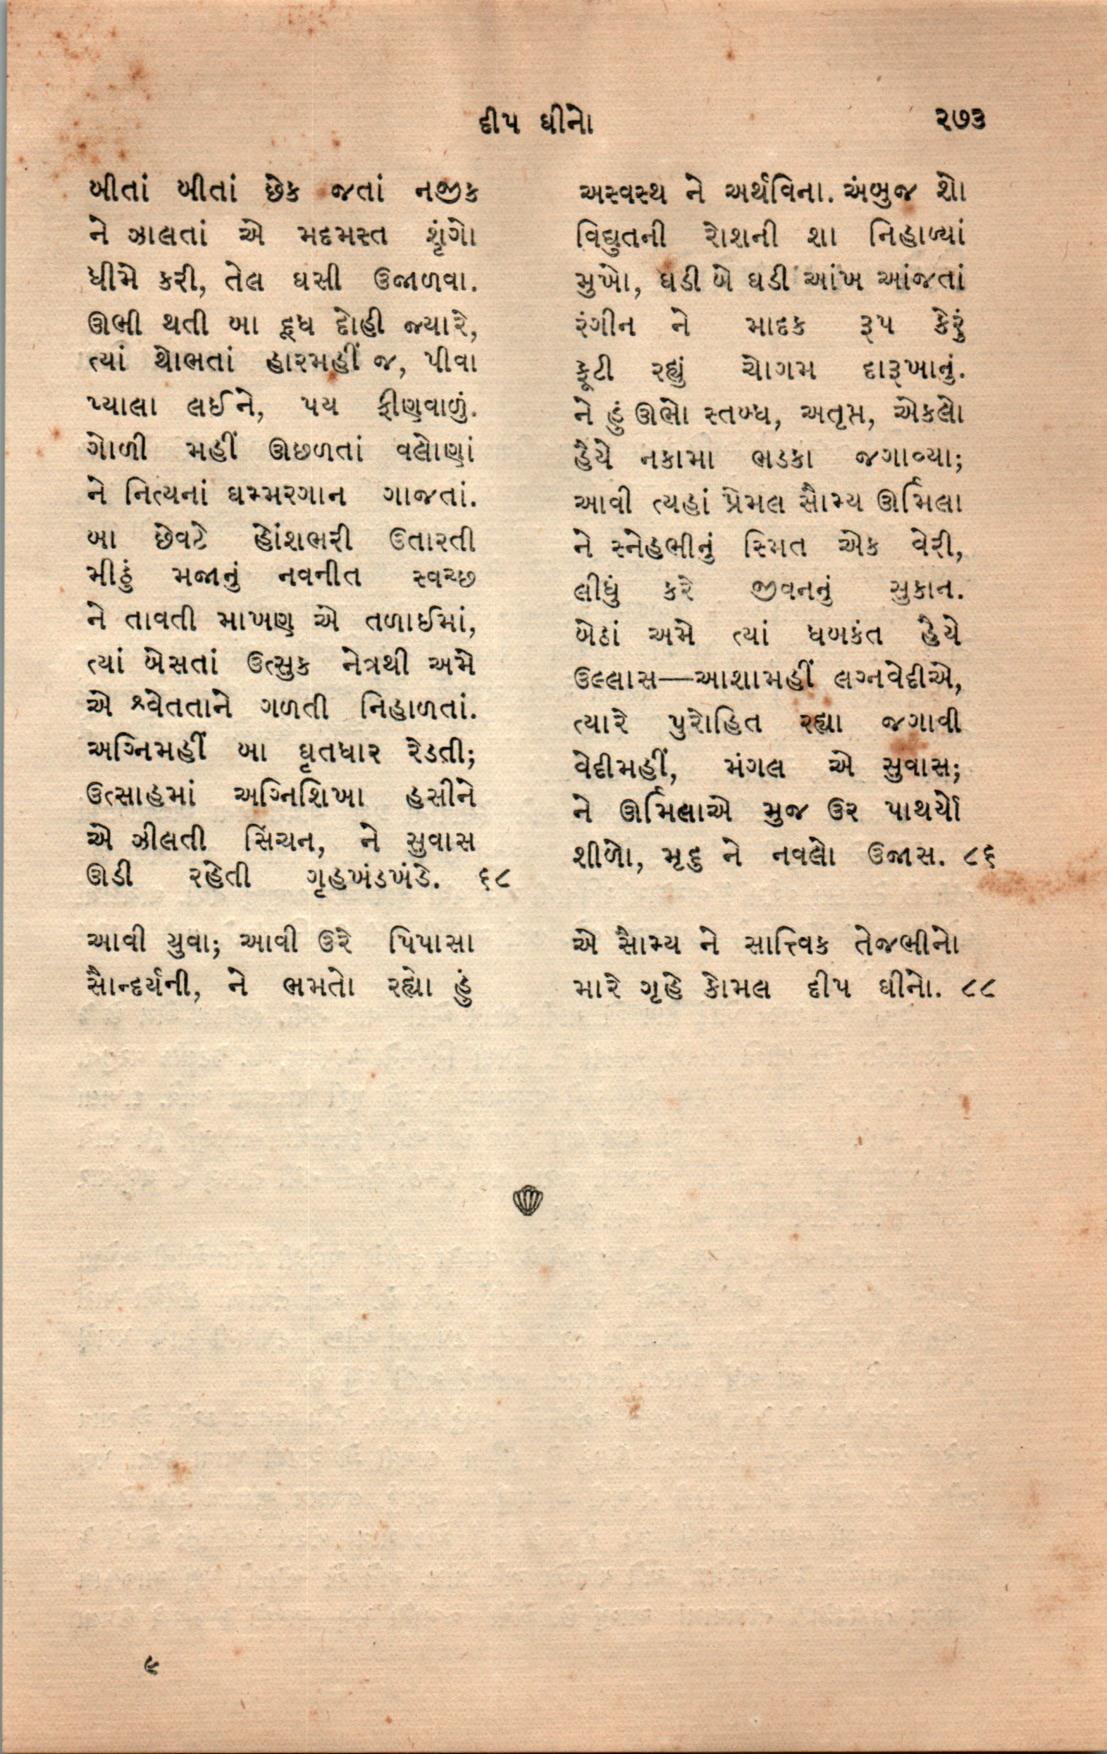 દીપ ઘીનો
૨૭૩
બીતાં બીતાં છેક જતાં નજીક
ને ઝાલતાં એ મદમસ્ત શૃંગો
ધીમે કરી, તેલ ઘસી ઉજાળવા.
ઊભી થતી બા દૂધ દોહી જ્યારે,
ત્યાં થોભતાં હારમહીં જ, પીવા
પ્યાલા લઈને, પય ફીણવાળું.
ગોળી મહીં ઊછળતાં વલોણાં
ને નિત્યનાં ઘમ્મરગાન ગાજતાં.
બા છેવટે હોંશભરી ઉતારતી
મીઠું મજાનું નવનીત સ્વચ્છ
ને તાવતી માખણ એ તળાઈમાં,
ત્યાં બેસતાં ઉત્સુક નેત્રથી અમે
એ શ્વેતતાને ગળતી નિહાળતાં.
અગ્નિમહીં બા ઘૃતધાર રેડતી;
ઉત્સાહમાં અગ્નિશિખા હસીને
એ ઝીલતી સિંચન, ને સુવાસ
ઊડી રહેતી ગૃહખંડખંડે. ૬૮
આવી યુવા; આવી ઉરે પિપાસા
સૌન્દર્યની, ને ભમતો રહ્યો હું
અસ્વસ્થ ને અર્થવિના. અંબુજ શો
વિદ્યુતની રોશની શા નિહાળ્યાં
મુખો, ઘડી બે ઘડી આંખ આંજતાં
રંગીન ને માદક રૂપ કેરું
ફૂટી રહ્યું ચોગમ દારૂખાનું.
ને હું ઊભો સ્તબ્ધ, અતૃપ્ત, એકલો
હૈયે નકામા ભડકા જગાવ્યા;
આવી ત્યહાં પ્રેમલ સૌમ્ય ઊર્મિલા
ને સ્નેહભીનું સ્મિત એક વેરી,
લીધું કરે જીવનનું સુકાન.
બેઠાં અમે ત્યાં ધબકંત હૈયે
ઉલ્લાસ—આશામહીં લગ્નવેદીએ,
ત્યારે પુરોહિત રહ્યા જગાવી
વેદીમહીં, મંગલ એ સુવાસ;
ને ઊર્મિલાએ મુજ ઉર પાથર્યો
શીળો, મૃદુ ને નવલો ઉજાસ. ૮૬
એ સૌમ્ય ને સાત્ત્વિક તેજભીનો
મારે ગૃહે કોમલ દીપ ઘીનો. ૮૮
૯